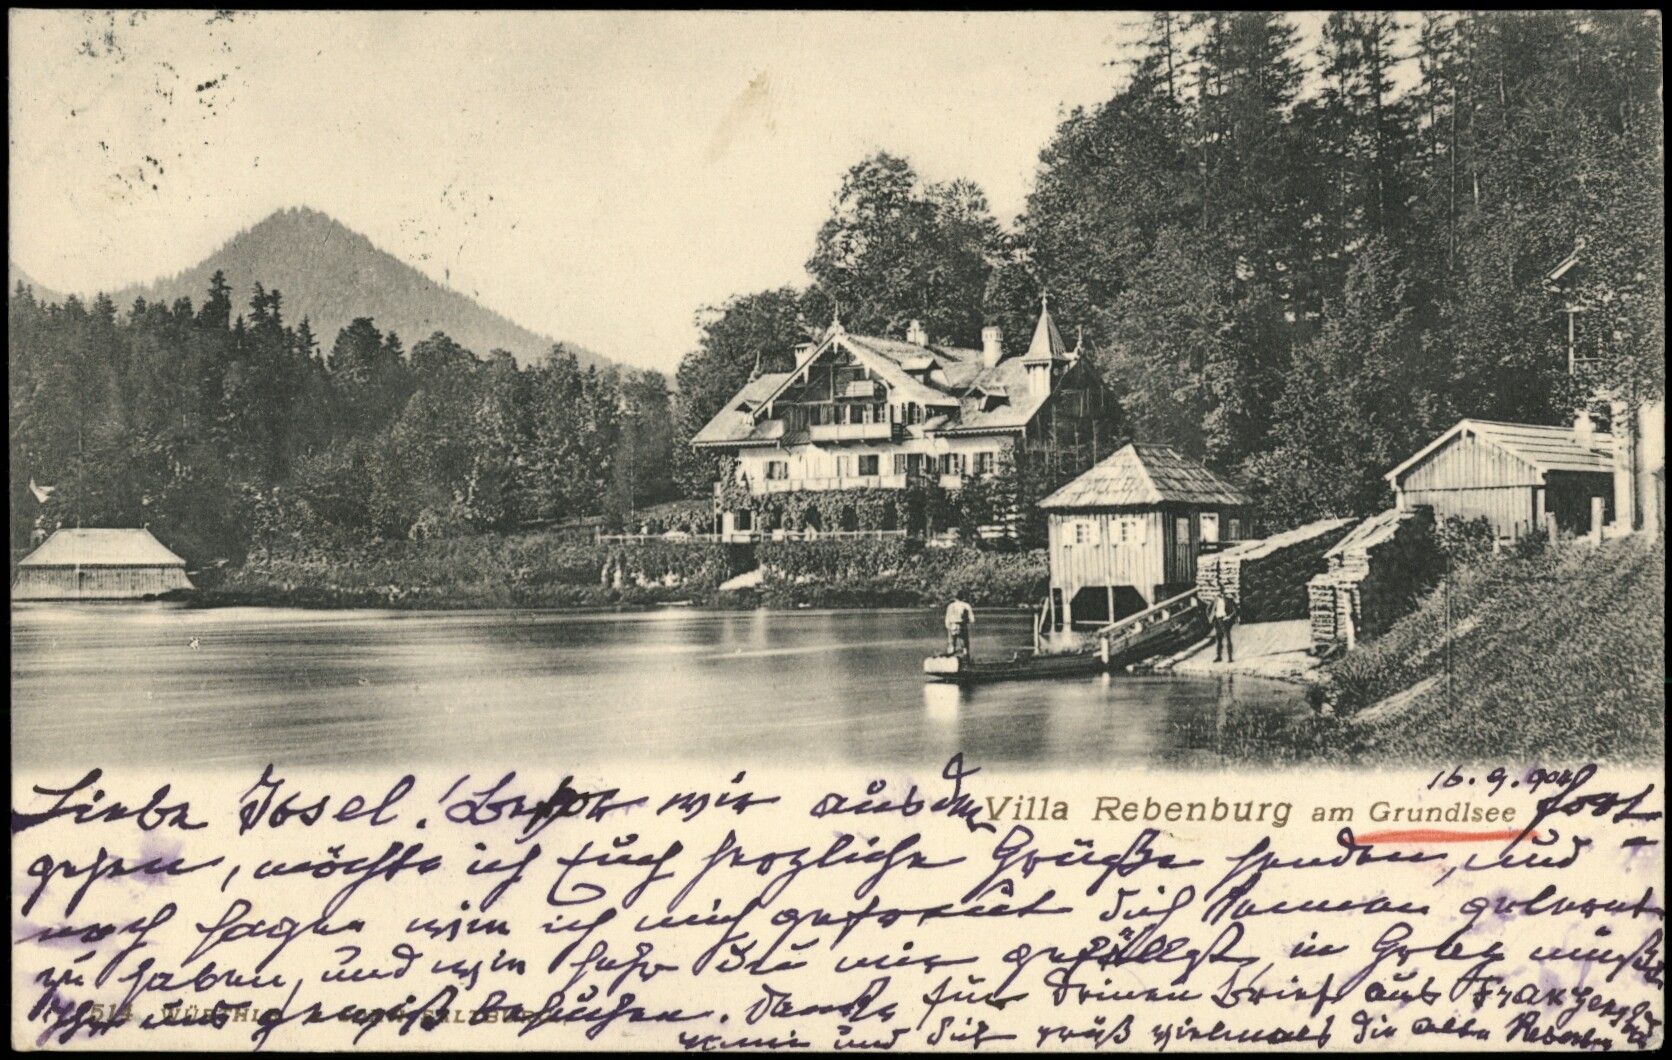 16. 9. 904
Villa Rebenburg am Grundlsee
Liebe Josel! Bevor wir aus dem fort
gehen, möchte ich Euch herzliche Grüße senden, und
noch sagen wie ich mich gefreut dich kennen gelernt
zu haben, und wie sehr du mir gefällst, in Graz müßt
Ihr uns gewiß besuchen. Danke für Deinen Brief aus
und dich grüß vielmals die alte
514 WÜRTHLE SALZBURG